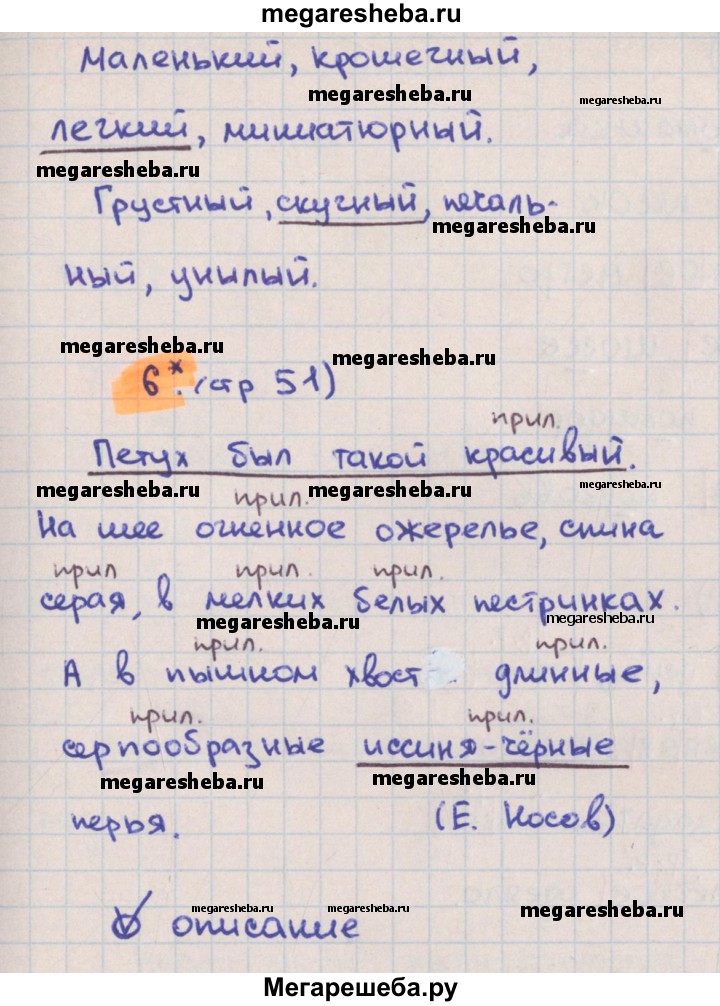 megaresheba.ru
маленький, крошечный,
megaresheba.ru megaresheba.ru
легкий, миниатюрный.
megaresheba.ru megaresheba.ru
Грустный, скучный, печаль-
megaresheba.ru
ный, унылый.
megaresheba.ru megaresheba.ru
6*. (стр 51)
прил.
Петух был такой красивый.
megaresheba.ru megaresheba.ru megaresheba.ru
прил.
На шее огненное ожерелье, спина
прил прил. прил.
серая, в мелких белых пестринках.
megaresheba.ru megaresheba.ru
прил. прил.
А в пышном хвост длинные,
прил. прил.
серпообразные иссиня-чёрные
megaresheba.ru megaresheba.ru
перья. (Е. Носов)
megaresheba.ru megaresheba.ru megaresheba.ru
описание
Мегарешеба.ру